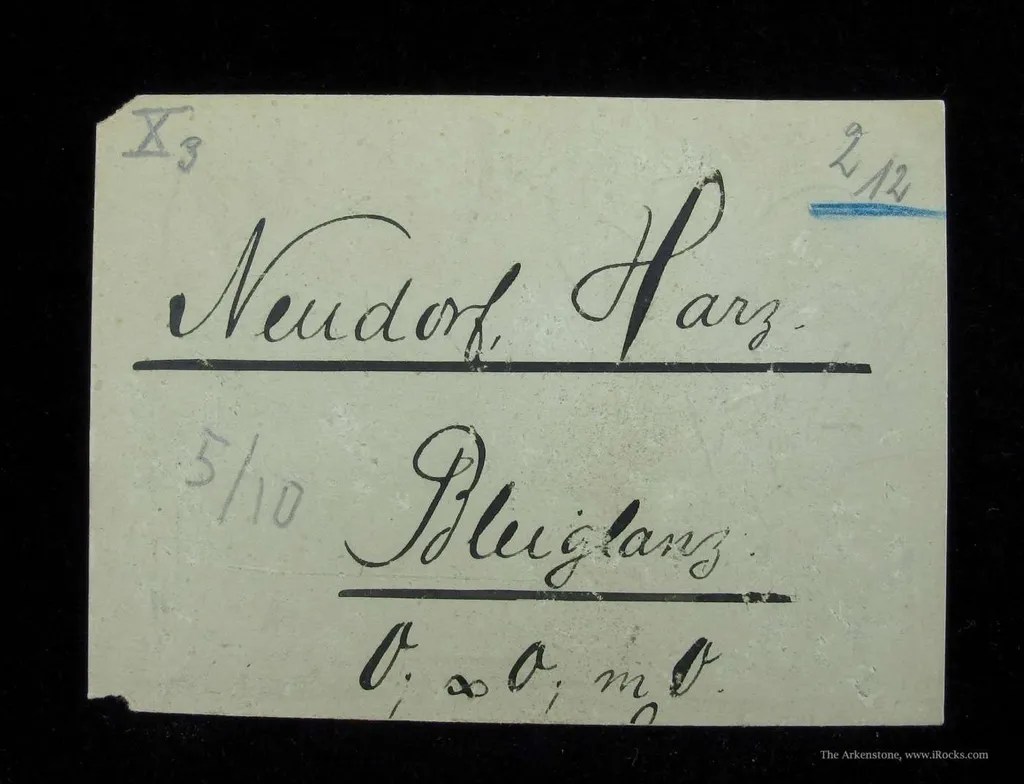 X3
2 12
Neudorf, Harz.
5/10
Bleiglanz.
O; ∞O; mO.
The Arkenstone, www.iRocks.com